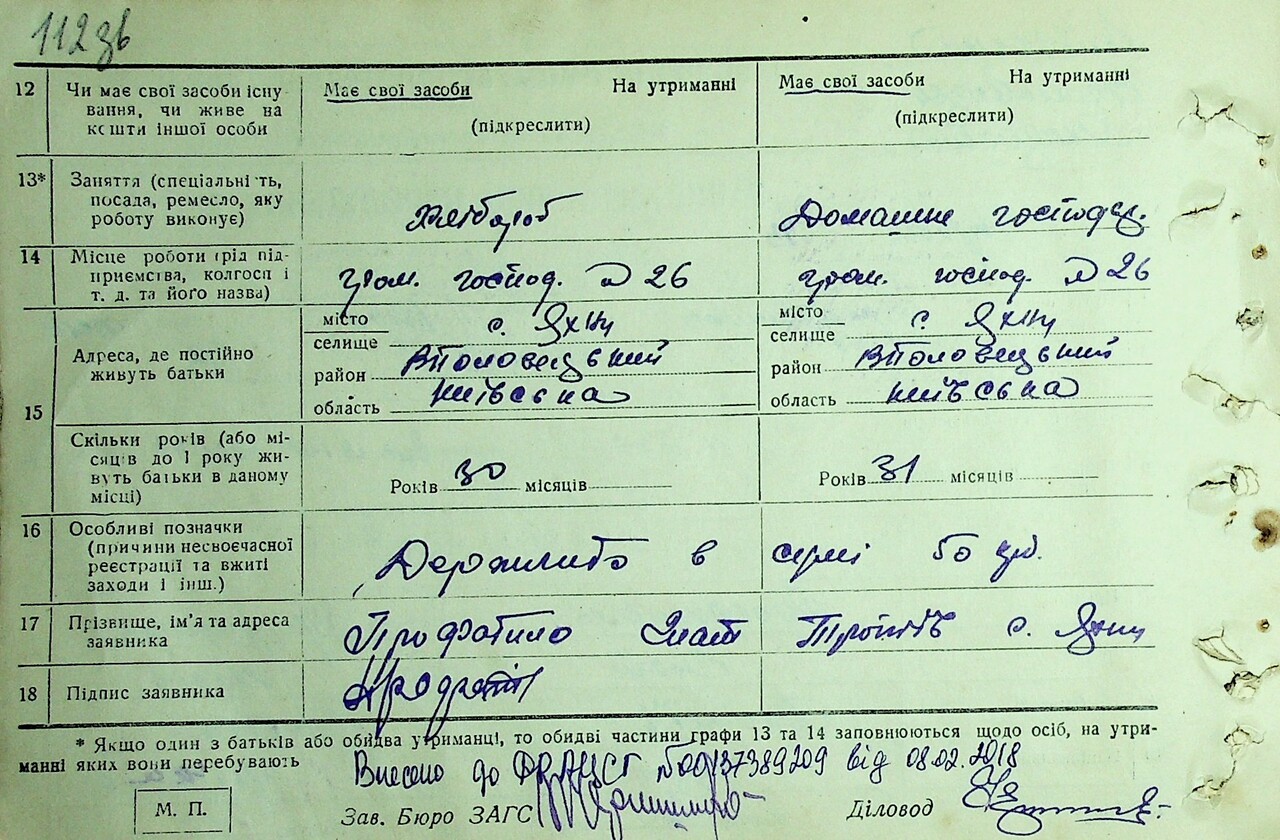 112 зв
12 Чи має свої засоби існу- Має свої засоби На утриманні Має свої засоби На утриманні
вання, чи живе на
кошти іншої особи (підкреслити) (підкреслити)
13* Заняття (спеціальність,
посада, ремесло, яку Хлібороб Домашнє господар.
роботу виконує)
14 Місце роботи (рід під-
приємства, колгосп і гром. господ. 26 гром. господ. 26
т. д. та його назва)
місто місто
селище с. Яхни селище с. Яхни
Адреса, де постійно
живуть батьки район район
15 область Київська область Київська
Скільки років (або мі-
сяців до 1 року жи-
вуть батьки в даному Років 30 місяців Років 31 місяців
місці)
16 Особливі позначки
(причини несвоєчасної
реєстрації та вжиті в сумі 50 крб.
заходи і інш.)
17 Прізвище, ім’я та адреса
заявника с. Яхни
18 Підпис заявника
* Якщо один з батьків або обидва утриманці, то обидві частини графи 13 та 14 заповнюються щодо осіб, на утри-
манні яких вони перебувають
Внесено до ДРАЦСГ №00137389209 від 08.02.2018
М. П. Зав. Бюро ЗАГС Діловод